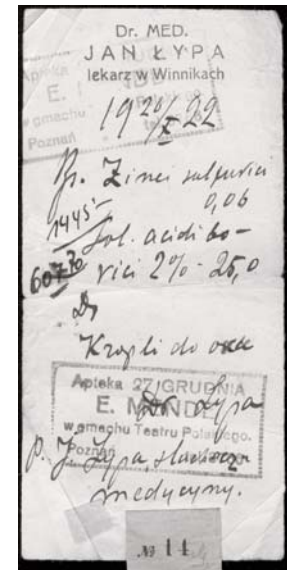 Dr. MED.
JAN ŁYPA
lekarz w Winnikach
Apteka
E.
w gmachu
Poznań
19 20/X 22
Rp. Zinci sulfurici
0,06
1445
Sol. acidi bo-
rici 2% - 25,0
60770
DS
Kropli do oka
Apteka 27 GRUDNIA
E. MONDE
Dr Łypa
w gmachu Teatru Polskiego.
Poznań
p. J. Łypa, słuchacz
medycyny.
№ 14